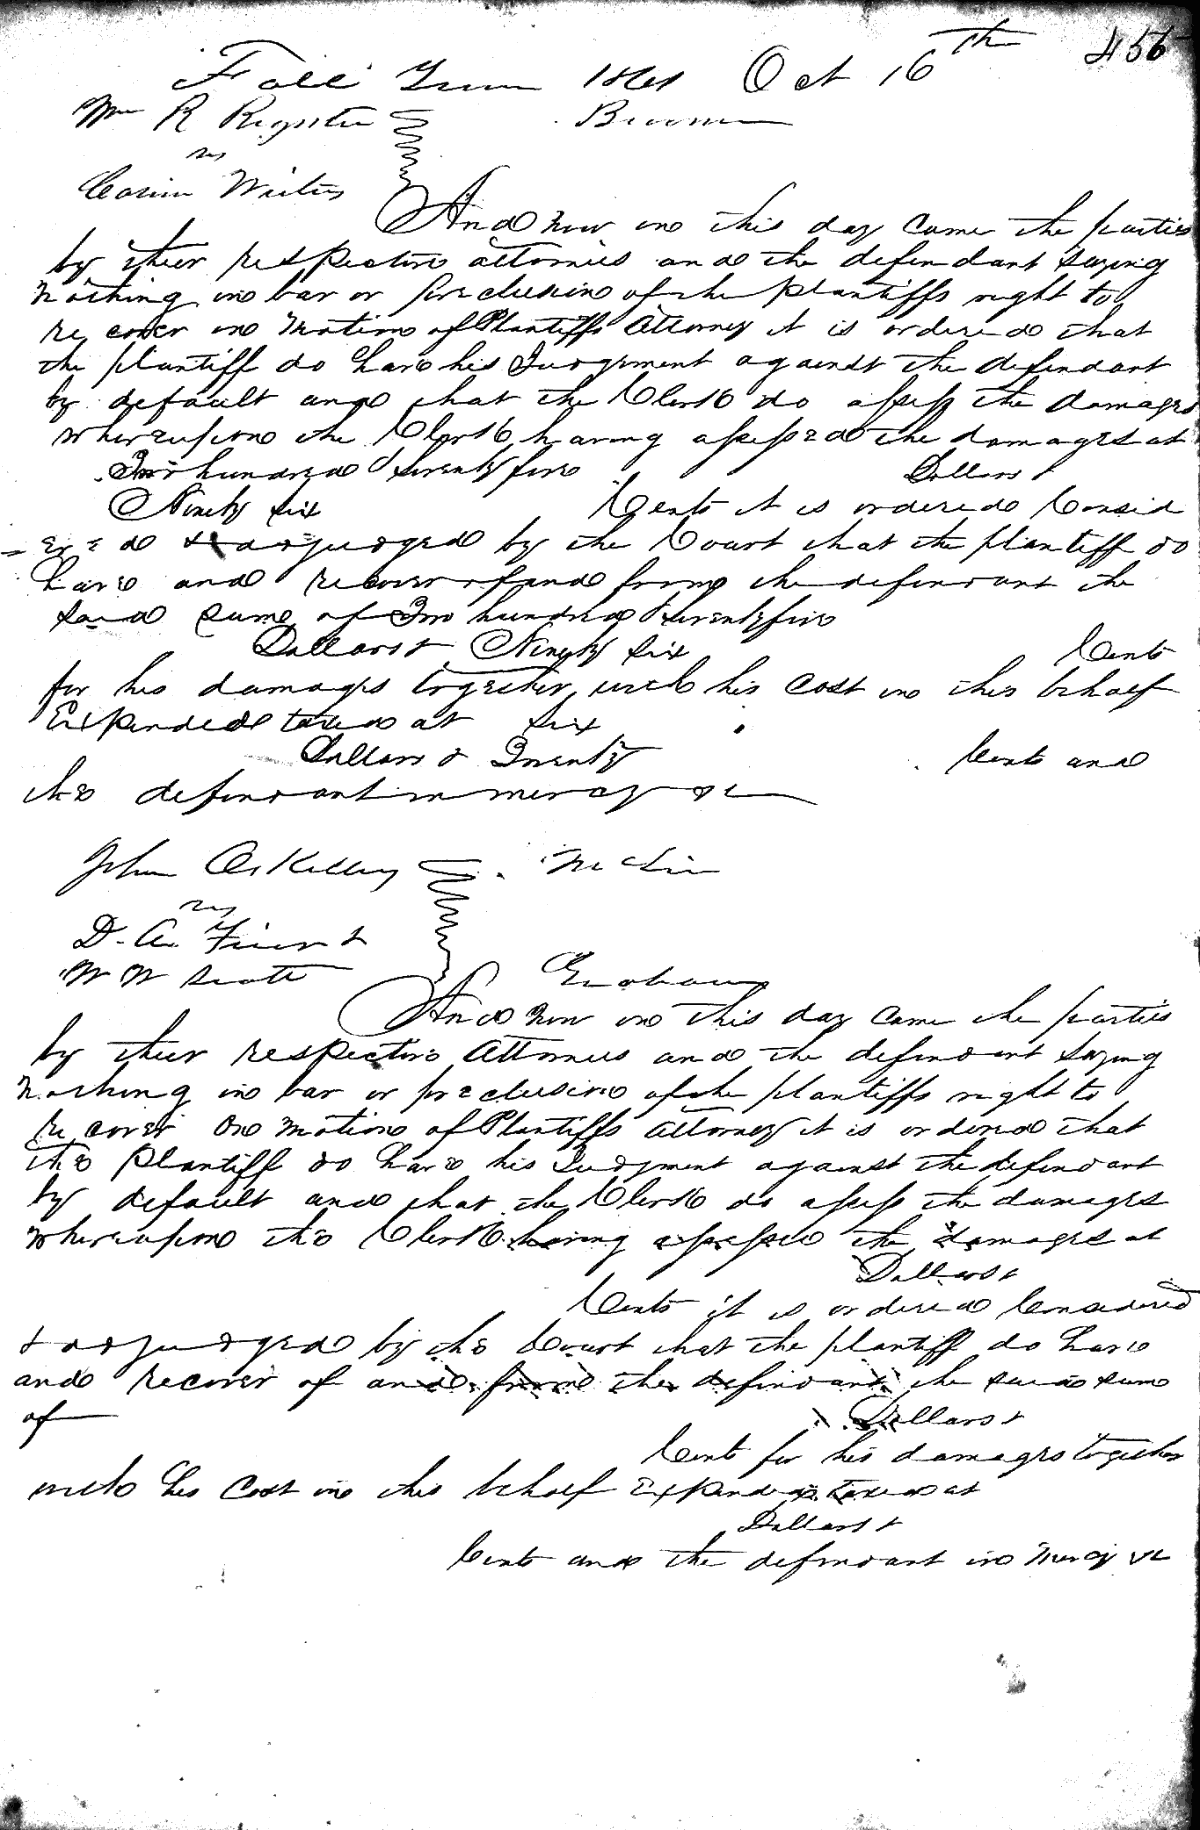 Fall Term 1861 Oct 16th 456
Wm R Register
vs
And now on this day came the parties
by their respective attornies and the defendant saying
nothing in bar or preclusion of the plantiffs right to
recover on motion of Plantiffs Attorney it is ordered that
the plantiff do have his Judgment against the defendant
by default and that the Clerk do assess the damages
whereupon the Clerk having assessed the damages at
Two hundred Seventy five Dollars &
Ninety six Cents it is ordered Consid
-ered & adjudged by the Court that the plantiff do
have and recover of and from the defendant the
said sum of Two hundred Seventy five
Dollars & Ninety six Cents
for his damages together with his Cost in this behalf
Expended taxed at six
Dollars & Twenty Cents and
the defendant in mercy &c
John
vs
D. A. &
W W Scott Graham
And now on this day came the parties
by their respective Attornies and the defendant saying
nothing in bar or preclusion of the plantiffs right to
recover On motion of Plantiffs attorney it is ordered that
the Plantiff do have his Judgment against the defendant
by default and that the Clerk do assess the damages
whereupon the Clerk having assessed the damages at
Dollars &
Cents it is ordered Considered
& adjudged by the Court that the plantiff do have
and recover of and from the defendant the said sum
of Dollars &
Cents for his damages together
with his Cost in this behalf Expended taxed at
Dollars &
Cents and the defendant in mercy &c